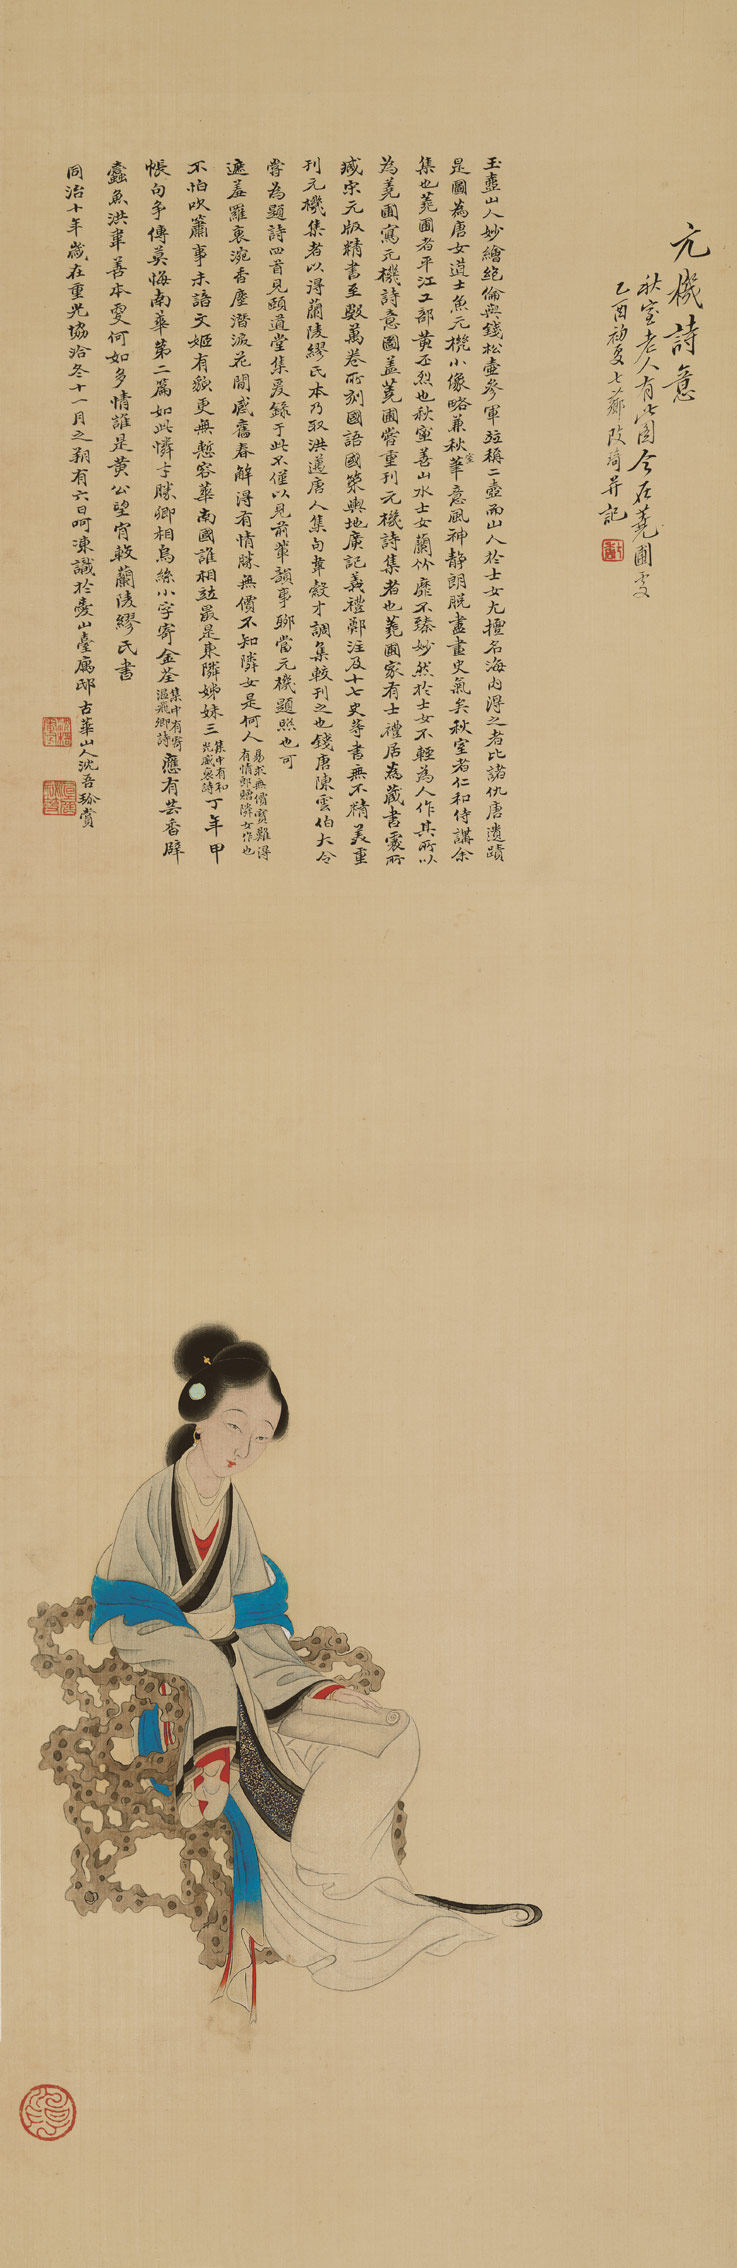 元機詩意
秋室老人有此圖今在蕘圃處
乙酉初夏七薌改琦并記
玉壺山人妙繪絕倫與錢松壺參軍並稱二壺而山人於士女尤擅名海內得之者比諸仇唐遺蹟
是圖為唐女道士魚元機小像略兼秋室華意風神靜朗脫盡畫史氣矣秋室者仁和侍講余
集也蕘圃者平江工部黃丕烈也秋室善山水士女蘭竹靡不臻妙然於士女不輕為人作其所以
為蕘圃寫元機詩意圖蓋蕘圃嘗重刊元機詩集者也蕘圃家有士禮居為藏書處所
臧宋元版精書至數萬卷所刻國語國策輿地廣記義禮鄭注及十七史等書無不精美重
刊元機集者以得蘭陵繆氏本乃取洪邁唐人集句韋縠才調集較刊之也錢唐陳雲伯大令
嘗為題詩四首見頤道堂集爰錄于此不僅以見前輩韻事聊當元機題照也可
遮羞羅裹涴香塵潛淚花間感舊春解得有情勝無價不知隣女是何人易求無價寶難得有情郎贈隣女作也
不怕吹簫事未諧文姬有貌更無慙容華南國誰相並最是東隣姊妹三集中有和光威裒詩丁年甲
帳句爭傳莫悔南華第二篇如此憐才勝卿相烏絲小字寄金荃集中有寄溫飛卿詩應有芸香辟
蠹魚洪韋善本更何如多情誰是黃公望宵較蘭陵繆氏書
同治十年歲在重光協洽冬十一月之朔有六日呵凍識於愛山臺寓邸古華山人沈吾珍賞